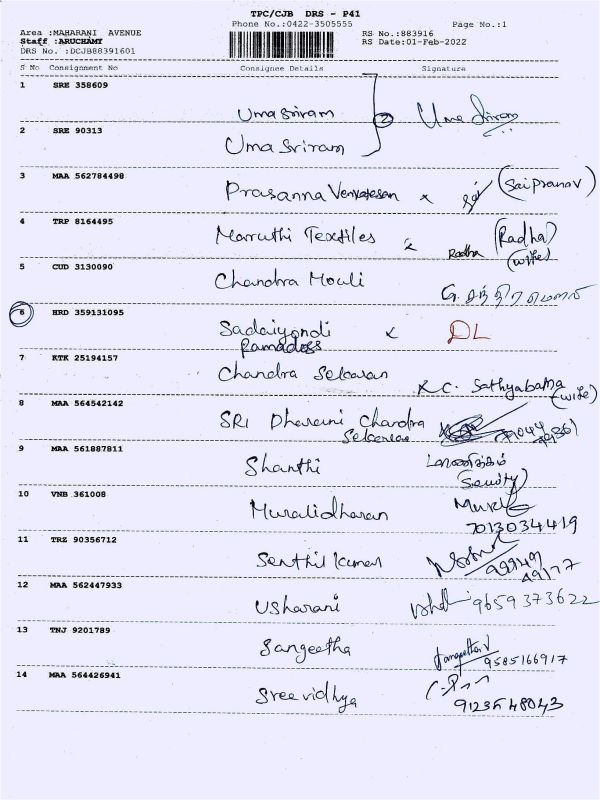 TPC/CJB DRS - P41
Phone No.:0422-3505555 Page No.:1
Area :MAHARANI AVENUE
Staff :ARUCHAMY
DRS No. :DCJB88391601
RS No.:883916
RS Date:01-Feb-2022
S No Consignment No Consignee Details Signature
1 SRE 358609
Uma Sriram
2 Uma Sriram
2 SRE 90313
Uma Sriram
3 MAA 562784498
Prasanna Venkatesan x (Sai Pranav)
4 TRP 8164495
Marruthi Textiles x Radha (Radha)
(wife)
5 CUD 3130090
Chandra Mouli G. சந்திரமௌலி
6 HRD 359131095
Sadaiyondi x DL
Ramadoss
7 KTK 25194157
Chandra Sekaran K.C. Sathyabama
(wife)
8 MAA 564542142
SRI Dharani Chandra
Sekaran
9 MAA 561887811
Shanthi மாணிக்கம்
10 VNB 361008
Muralidharan Murali
7013034419
11 TRZ 90356712
Senthil Kumar
12 MAA 562447933
Usharani Usha 9659373622
13 TNJ 9201789
Sangeetha
9585166917
14 MAA 564426941
Sreevidhya
9123548043